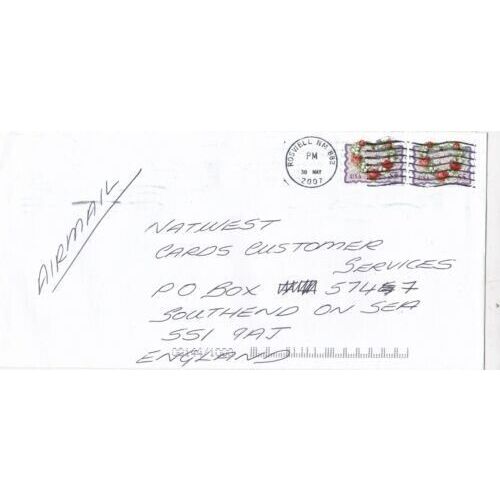 ROSWELL NM 882
PM
30 MAY
2007
USA
AIRMAIL
NATWEST
CARDS CUSTOMER
SERVICES
PO BOX 57457
SOUTHEND ON SEA
SS1 9AJ
ENGLAND